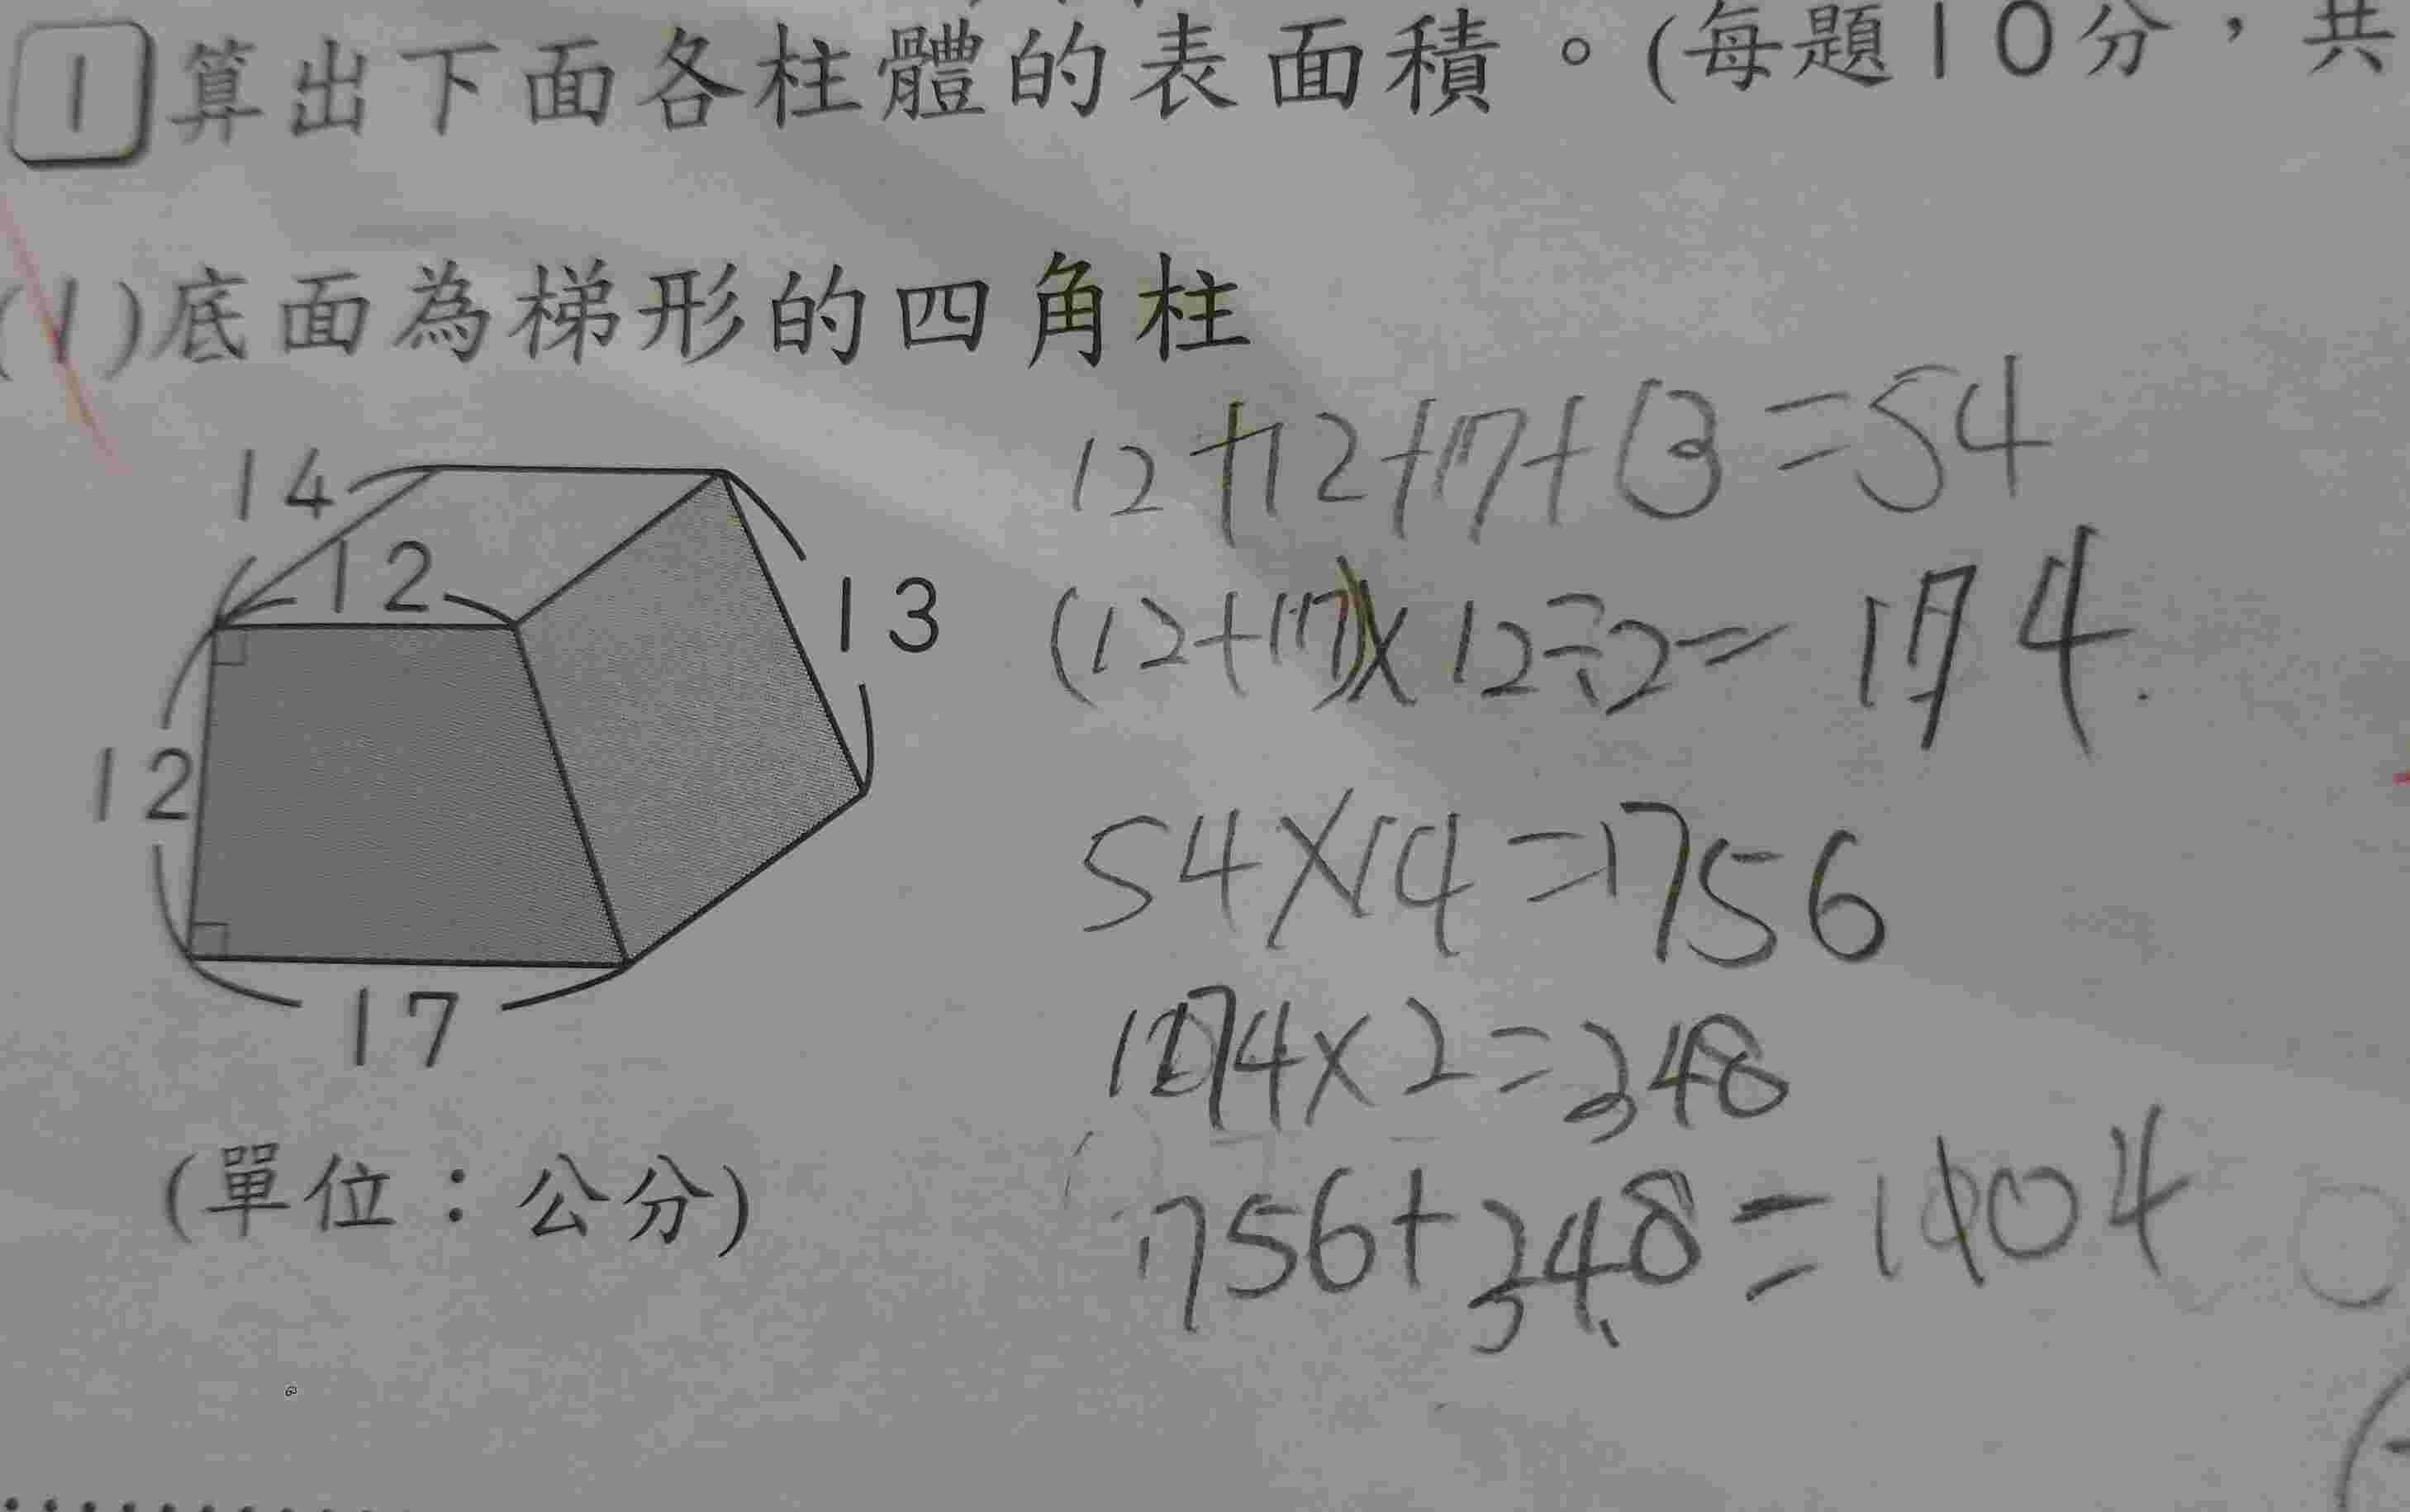 1 算出下面各柱體的表面積。(每題10分，共
(1)底面為梯形的四角柱
12+12+17+13=54
14
12
13
(12+17)×12÷2=174
12
54×14=756
17
174×2=348
(單位：公分)
756+348=1104